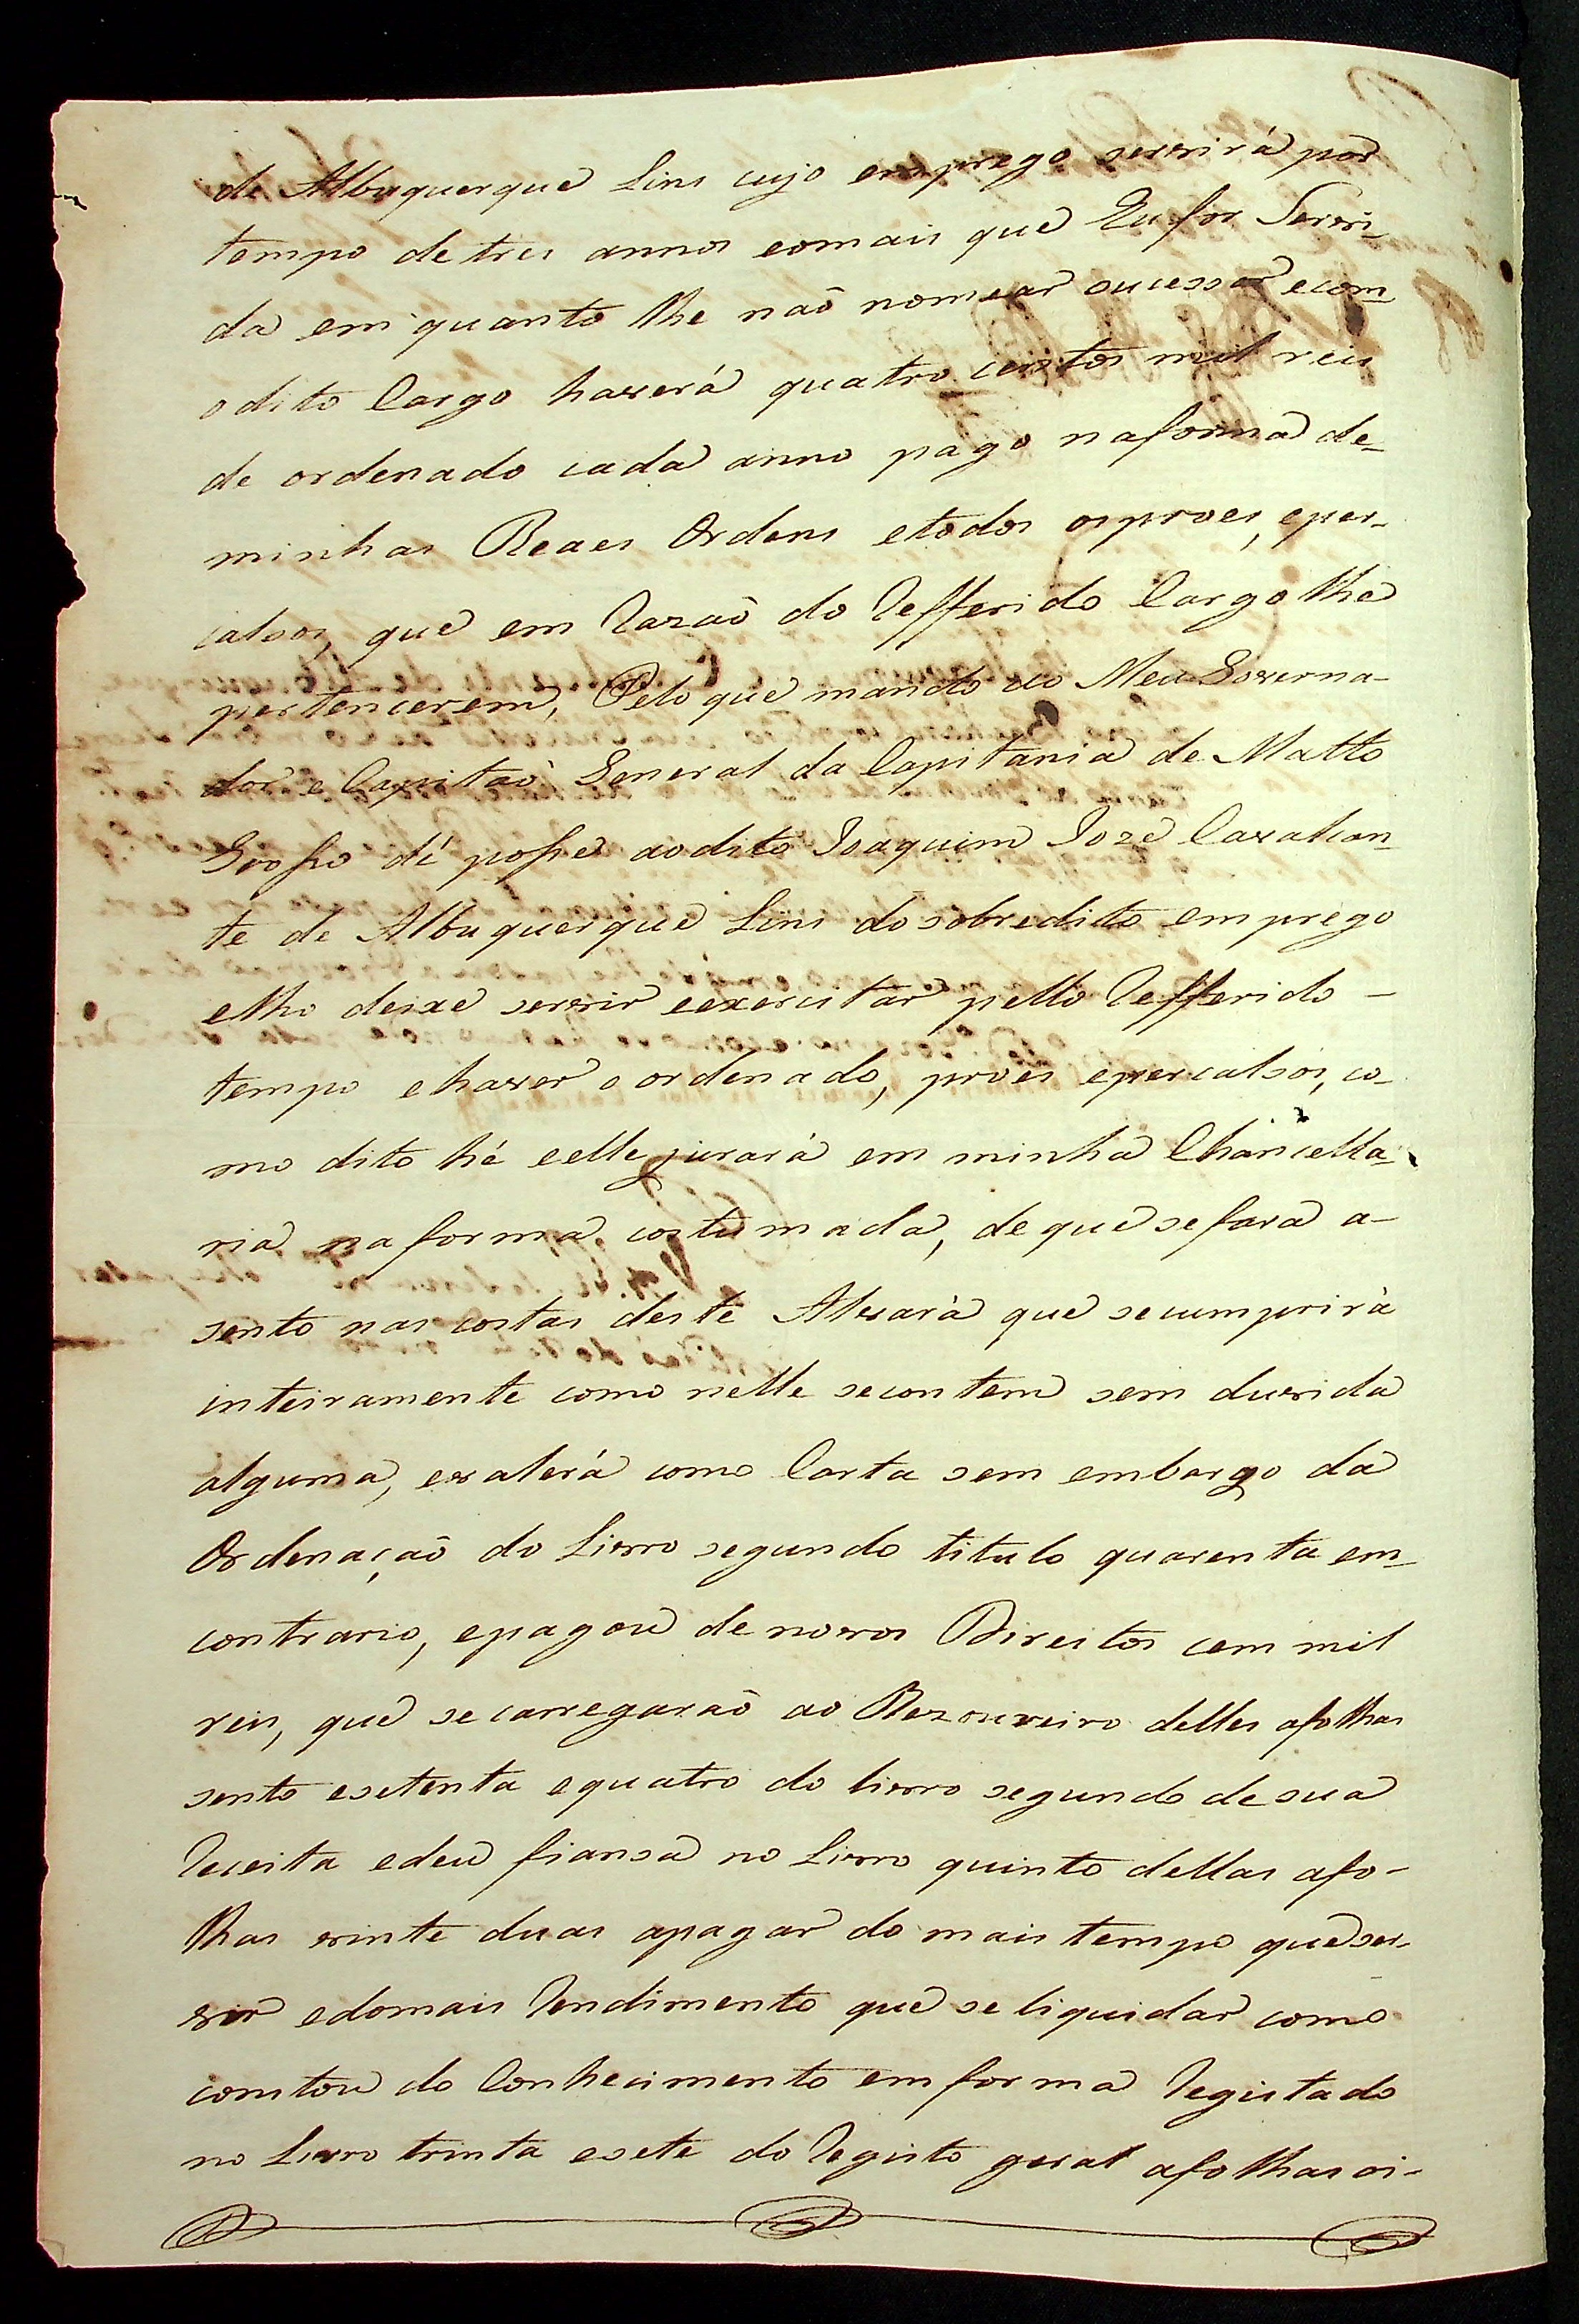 de Albuquerque Lins cujo emprego servirá por
tempo de tres annos eomais que Eu for Servi-
da em quanto lhe naõ nomear sucessor ecom
odito Cargo haverá quatro centos mil reis
de ordenado cada anno pago naforma de-
minhas Reaes Ordens etodos osproes, eper-
calsos, que em Razaõ do Refferido Cargo lhe
pertencerem, Pelo que mando ao Meu Governa-
dor e Capitaõ General da Capitania de Matto
Grosso dé posse aodito Joaquim Jozé Cavalcan-
te de Albuquerque Lins do sobredito emprego
elho deixe servir eexercitar pello Refferido -
tempo ehaver o ordenado, proes epercalsos, co-
mo dito hé eelle jurará em minha Chancella-
ria na forma costumada, de que se fara a-
sento nas costas deste Alvará que secumprirá
inteiramente como nelle secontem sem duvida
alguma, evalerá como Carta sem embargo da
Ordenaçaõ do Livro segundo titulo quarenta em-
contrario, epagou de novos Direitos cem mil
reis, que se carregaraõ ao Thezoureiro delles afolhas
sento esetenta equatro do livro segundo de sua
Receita edeu fiansa no Livro quinto dellas afo-
lhas vinte duas apagar do mais tempo que ser-
vir edomais Rendimento que se liquidar como
constou do Conhecimento em forma Registado
no Livro trinta esete do Registo geral afolhas oi-